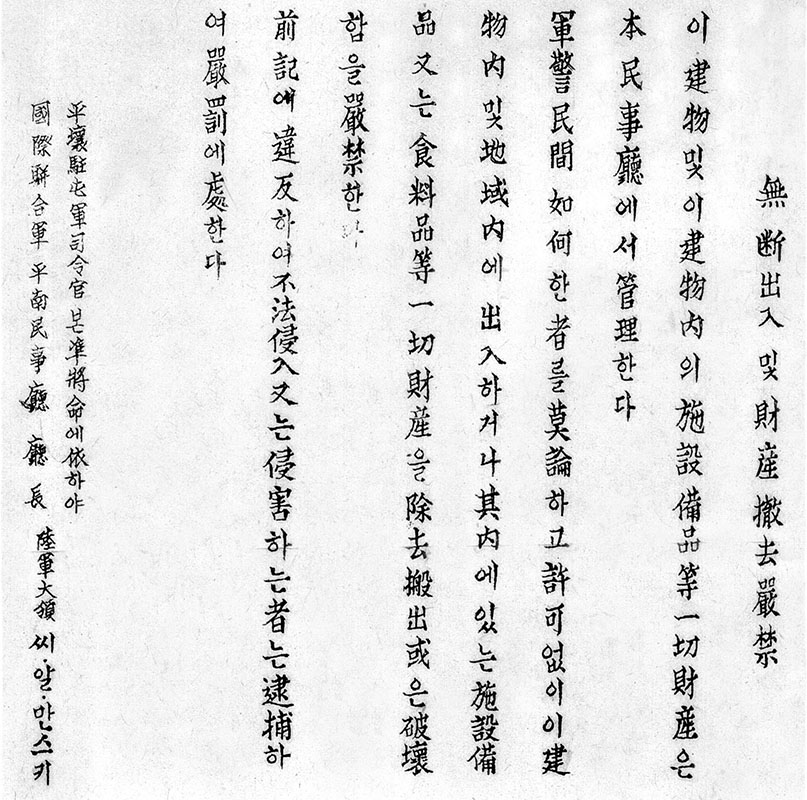 無断出入 및 財産撤去嚴禁
이 建物 및 이 建物内의 施設備品等 一切財産은
本民事廳에서 管理한다
軍警民間 如何한 者를 莫論하고 許可없이 이 建
物内 및 地域内에 出入하거나 其内에 있는 施設備
品 又는 食料品等 一切財産을 除去搬出 或은 破壞
함을 嚴禁한
前記에 違反하여 不法侵入 又는 侵害하는 者는 逮捕하
여 嚴罰에 處한다
平壤駐屯軍司令官 본准將命에 依하야
國際聯合軍 平南民事廳 廳長 陸軍大領 씨·알·만스키